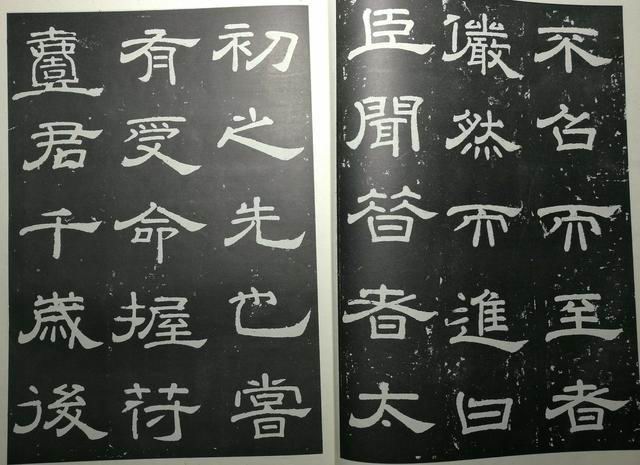 不召而至者
儼然而進曰
臣聞昔者太
初之先也嘗
有受命握苻
君千歲後